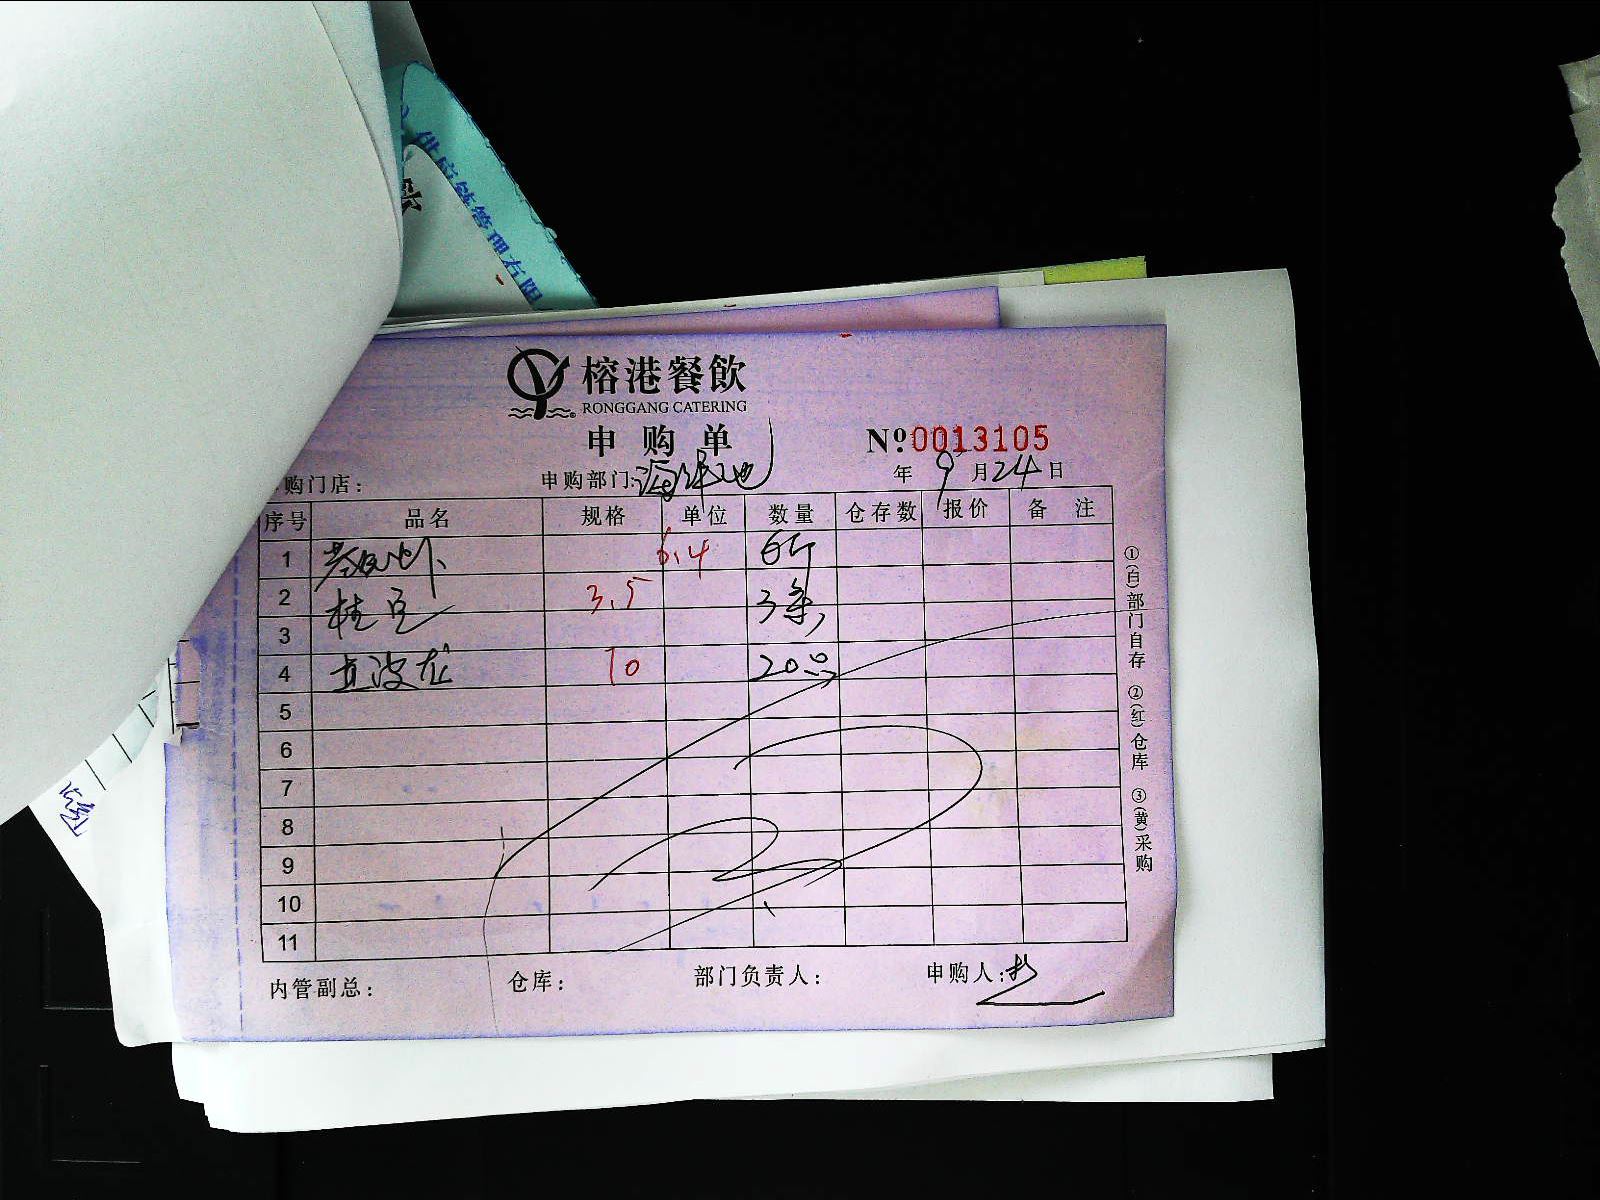 供应链管理有限
榕港餐飲
RONGGANG CATERING
申购单
№0013105
购门店：
申购部门：海鲜池
年 9 月 24 日
序号 品名 规格 单位 数量 仓存数 报价 备注
1 6.4 6斤
2 桂 3.5 3条
3
4 波龙 10 20
5
6
7
8
9
10
11
内管副总：
仓库：
部门负责人：
申购人：
①(白)部门自存 ②(红)仓库 ③(黄)采购